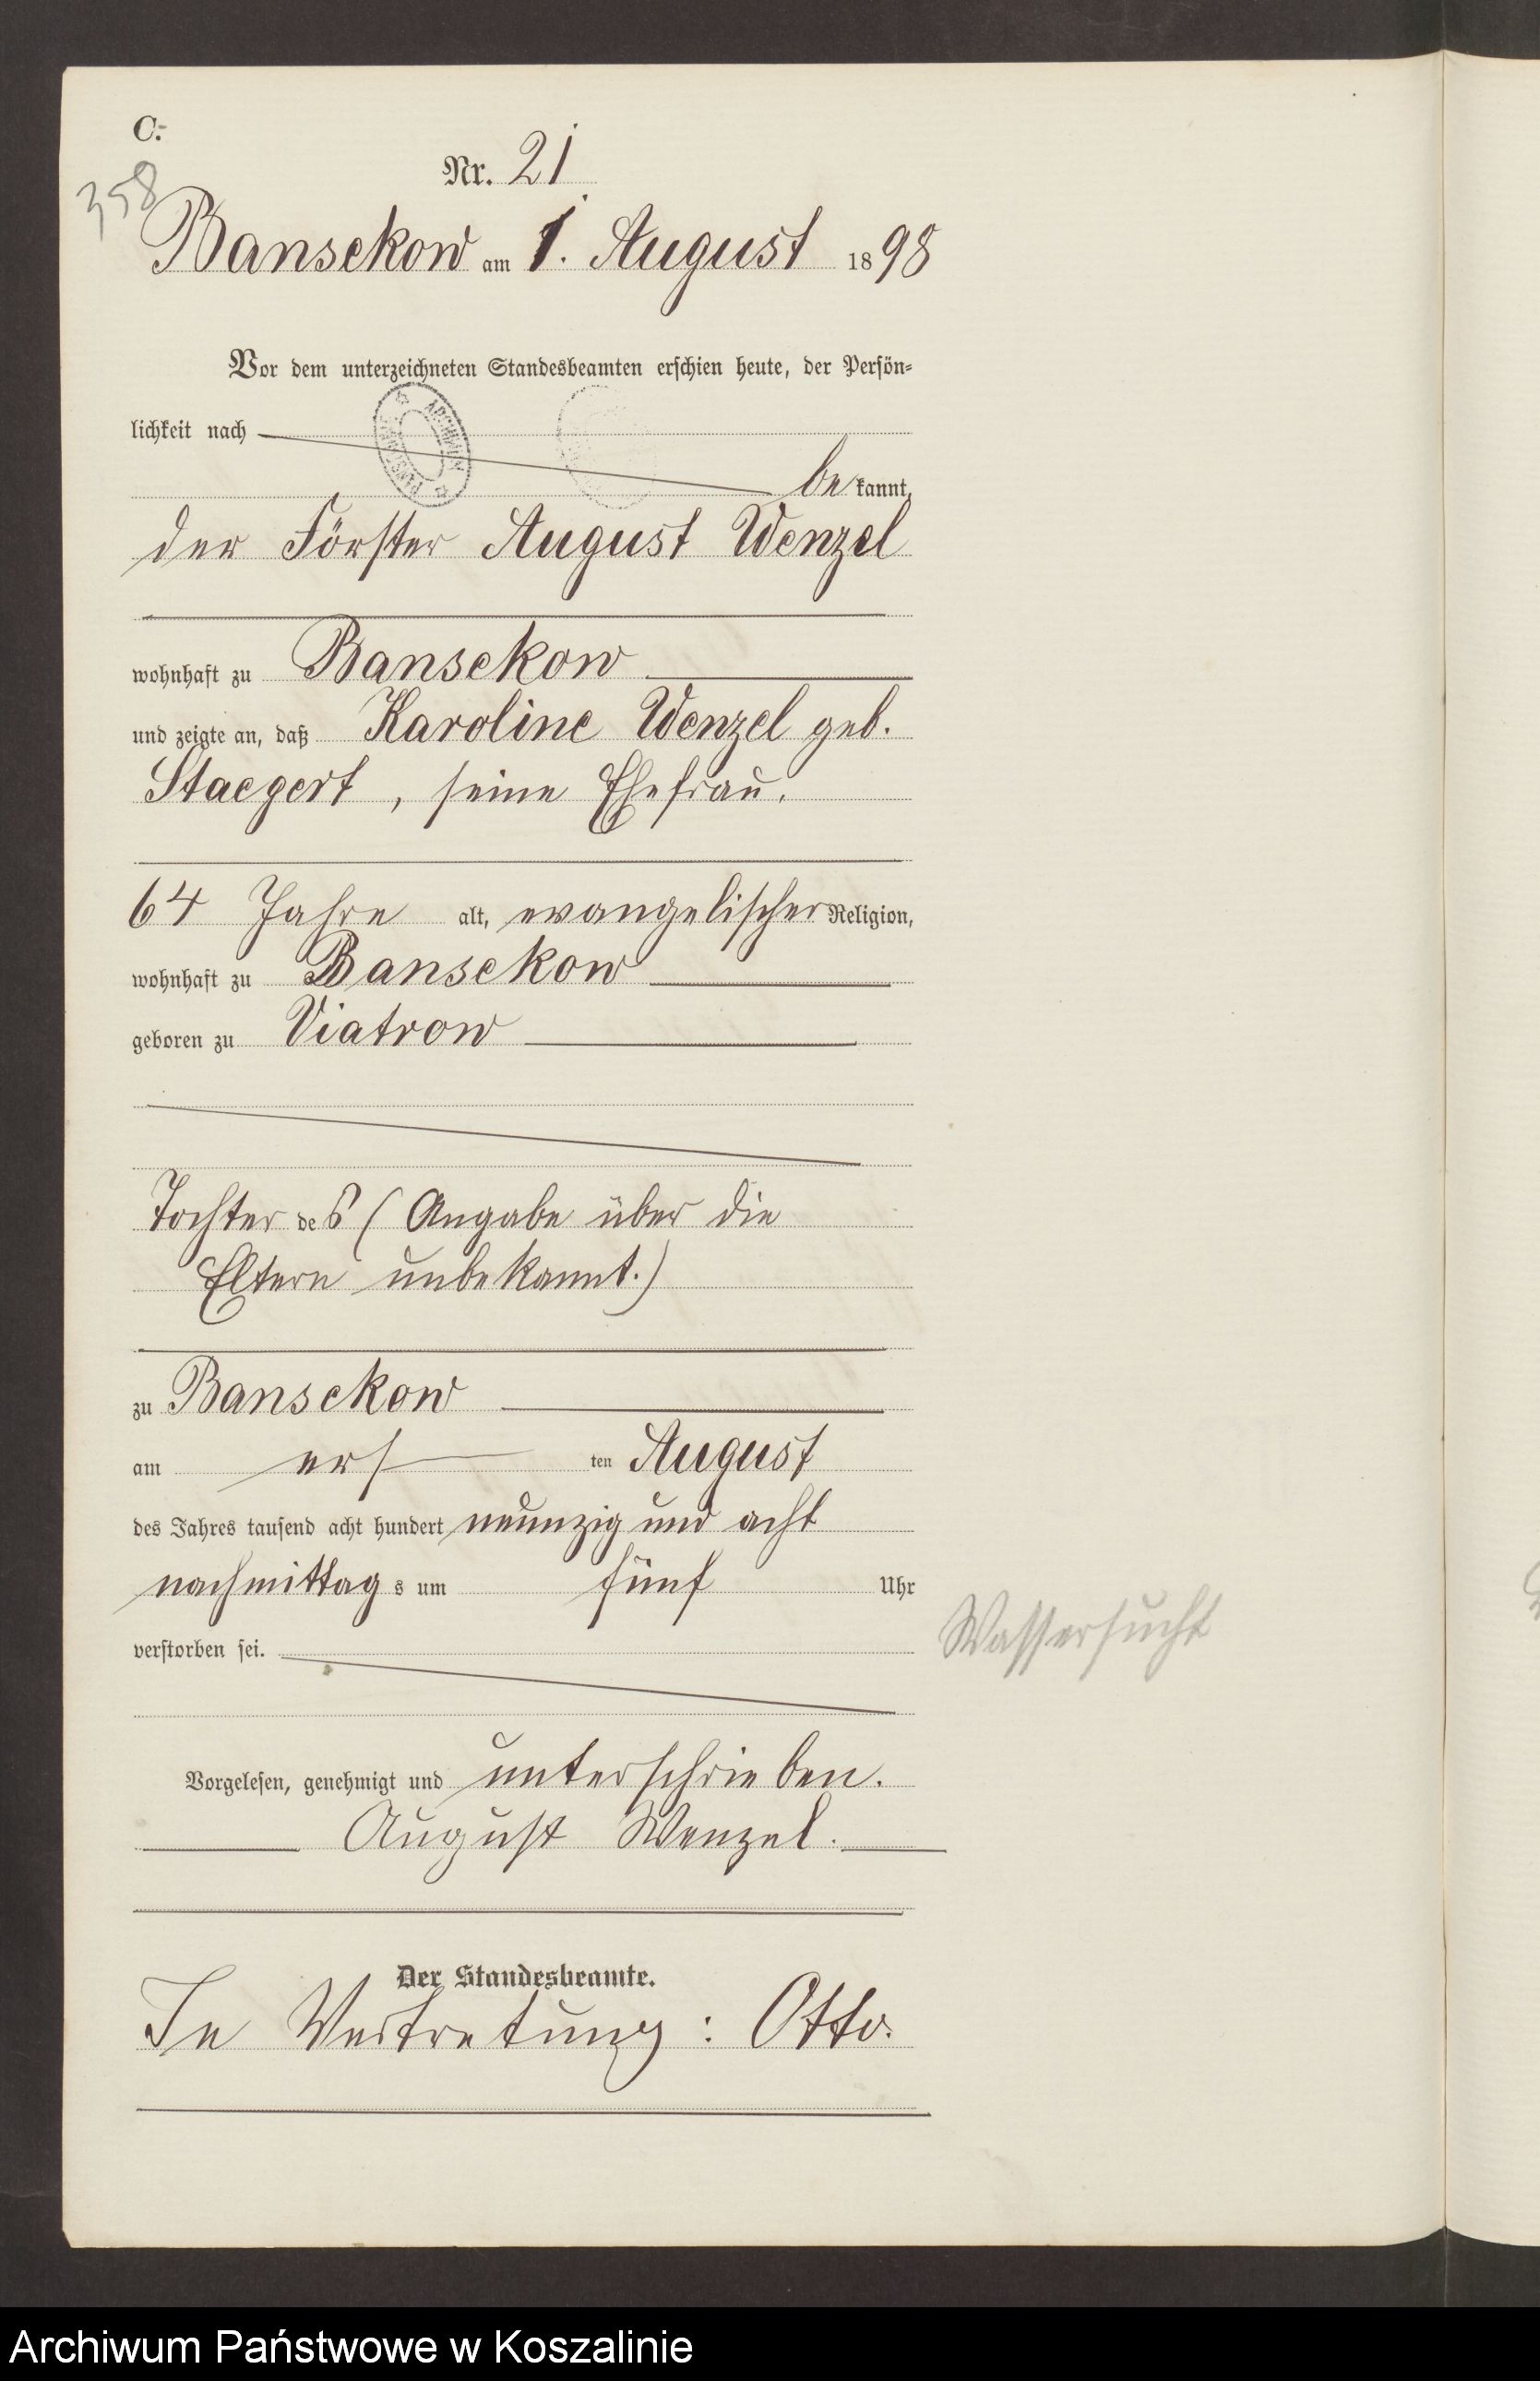 C.
358
Nr. 21
Bansekow am 1. August 1898
Vor dem unterzeichneten Standesbeamten erschien heute, der Persön-
lichkeit nach
be kannt,
der Förster August Wenzel
wohnhaft zu Bansekow
und zeigte an, daß Karoline Wenzel geb.
Staegert, seine Ehefrau.
64 Jahre alt, evangelischer Religion,
wohnhaft zu Bansekow
geboren zu Viatrow
Tochter des (Angabe über die
Eltern unbekannt.)
zu Bansekow
am ers ten August
des Jahres tausend acht hundert neunzig und acht
nachmittag s um fünf Uhr
verstorben sei.
Wassersucht
Vorgelesen, genehmigt und unterschrieben.
August Wenzel.
Der Standesbeamte.
In Vertretung: Otto.
Archiwum Państwowe w Koszalinie